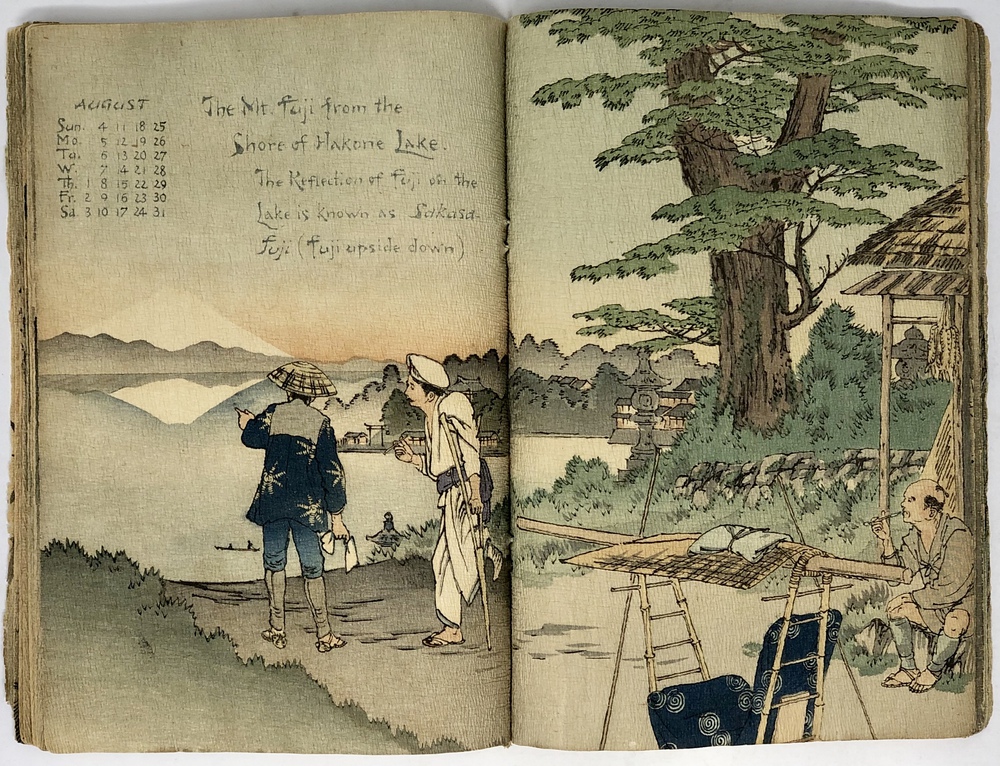 AUGUST
Sun. 4 11 18 25
Mo. 5 12 19 26
Tu. 6 13 20 27
W. 7 14 21 28
Th. 1 8 15 22 29
Fr. 2 9 16 23 30
Sd. 3 10 17 24 31
The Mt. Fuji from the
Shore of Hakone Lake.
The Reflection of Fuji on the
Lake is known as Sakasa-
Fuji (Fuji upside down)